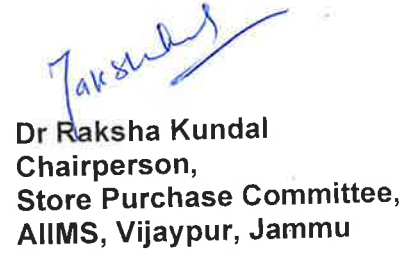 Raksha
Dr Raksha Kundal
Chairperson,
Store Purchase Committee,
AIIMS, Vijaypur, Jammu